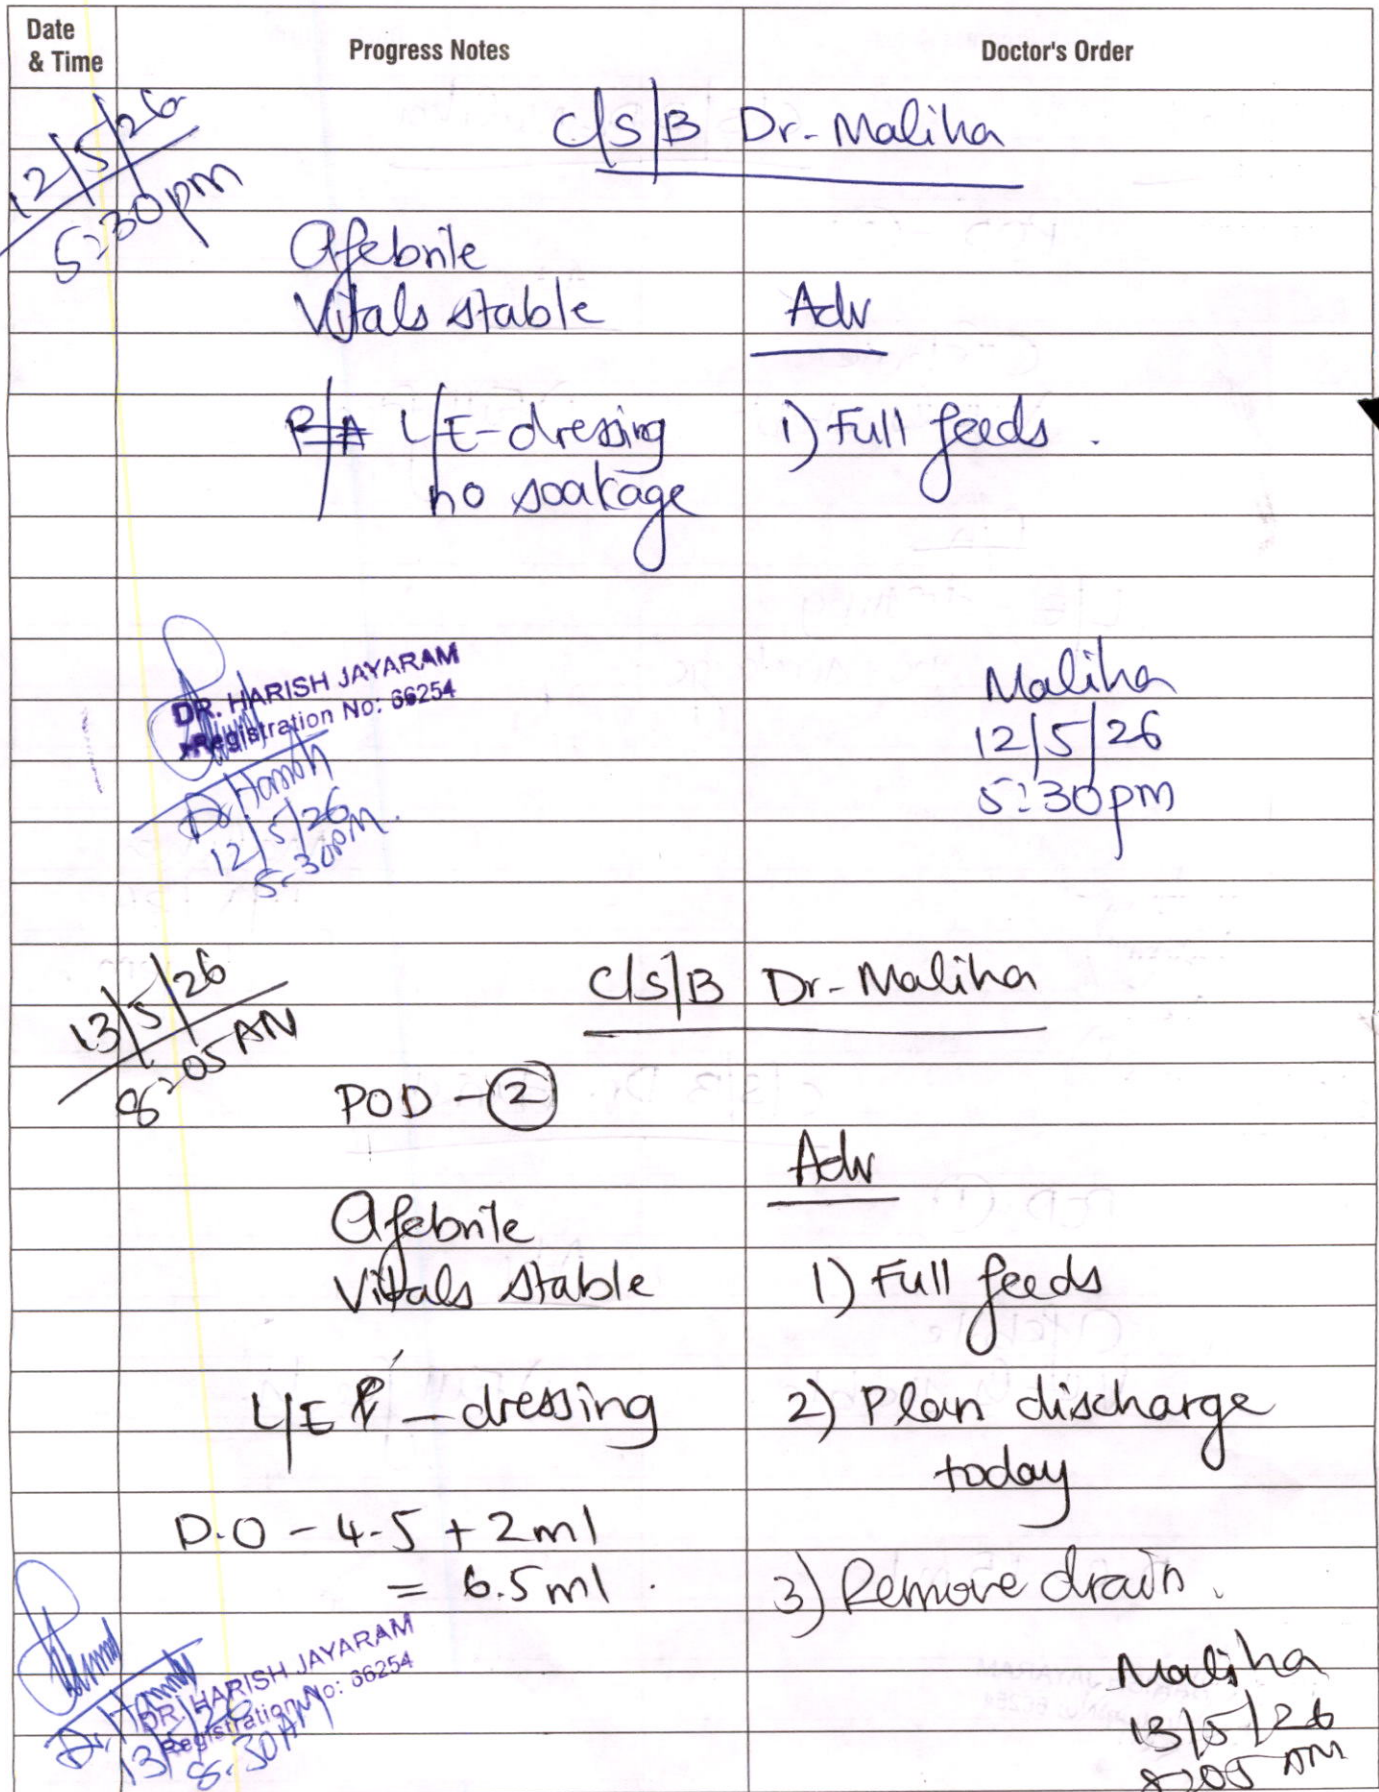 Date & Time
Progress Notes
Doctor's Order
12/5/26
5:30pm
C/S/B Dr. Maliha
Afebrile
Vitals stable
Adv
L/E - dressing
no soakage
1) Full feeds.
DR. HARISH JAYARAM
Registration No: 66254
Dr. Harish
12/5/26
5-30PM.
Maliha
12/5/26
5:30pm
13/5/26
8:05 AM
C/S/B Dr. Maliha
POD - 2
Adv
Afebrile
Vitals stable
1) Full feeds
L/E - dressing
2) Plan discharge
today
D.O - 4.5 + 2ml
= 6.5ml.
3) Remove drain.
DR. HARISH JAYARAM
Registration No: 66254
Dr. Harish
13/5/26
8-30AM
Maliha
13/5/26
8:05 AM